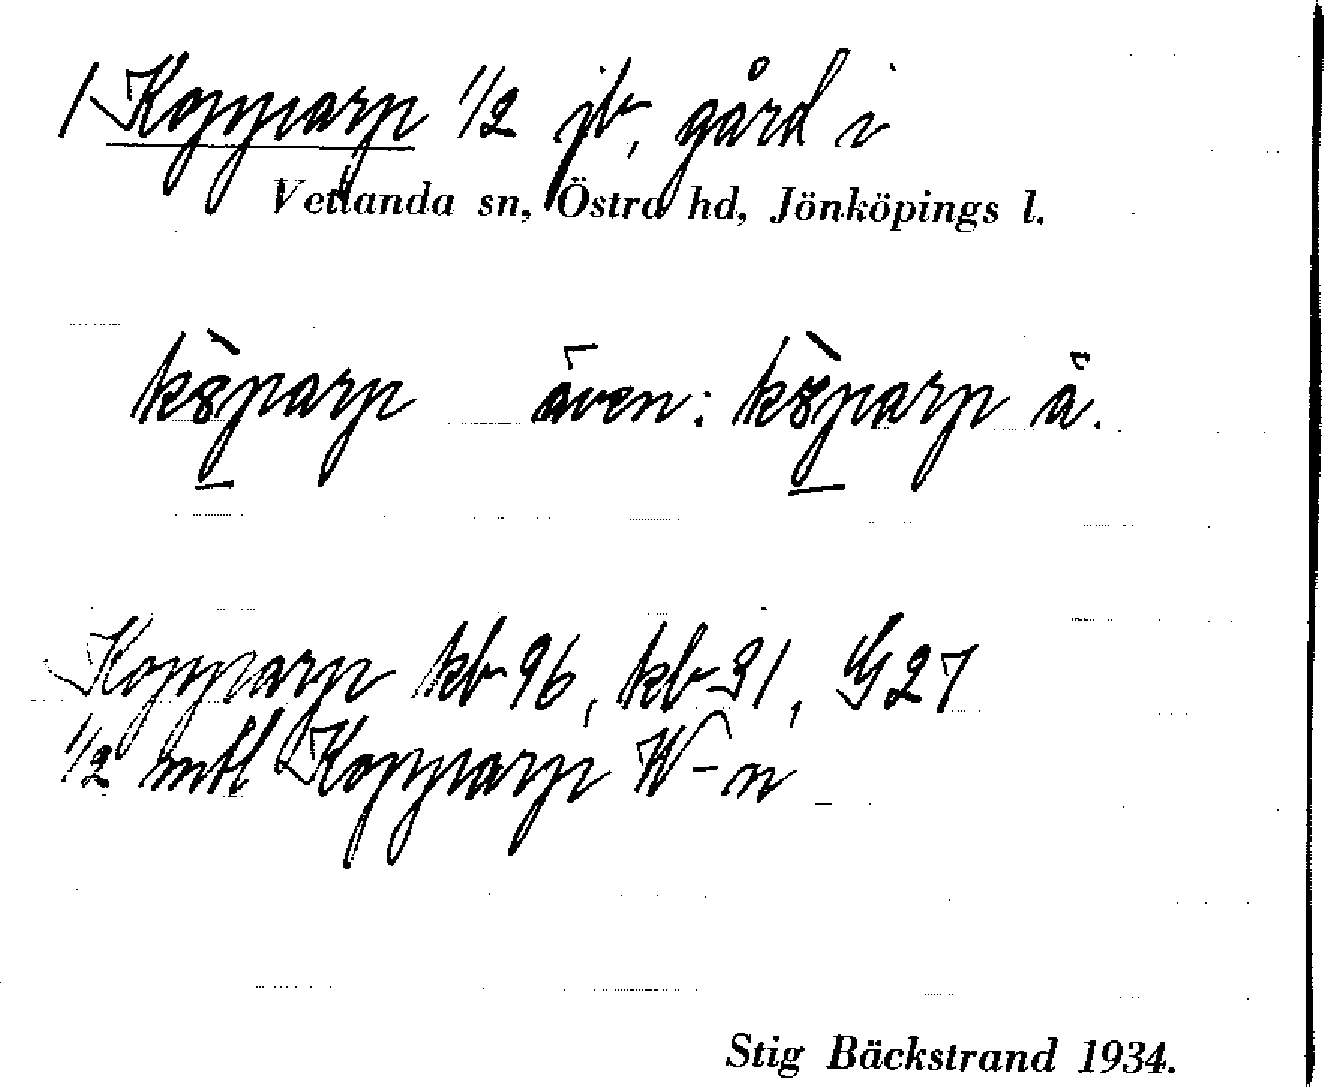 1 Kopparp 1/2 jb, gård i
Vetlanda sn, Östra hd, Jönköpings l.
även: å.
Kopparp kb 96, kb 31, G 27
1/2 mtl Kopparp W-n
Stig Bäckstrand 1934.